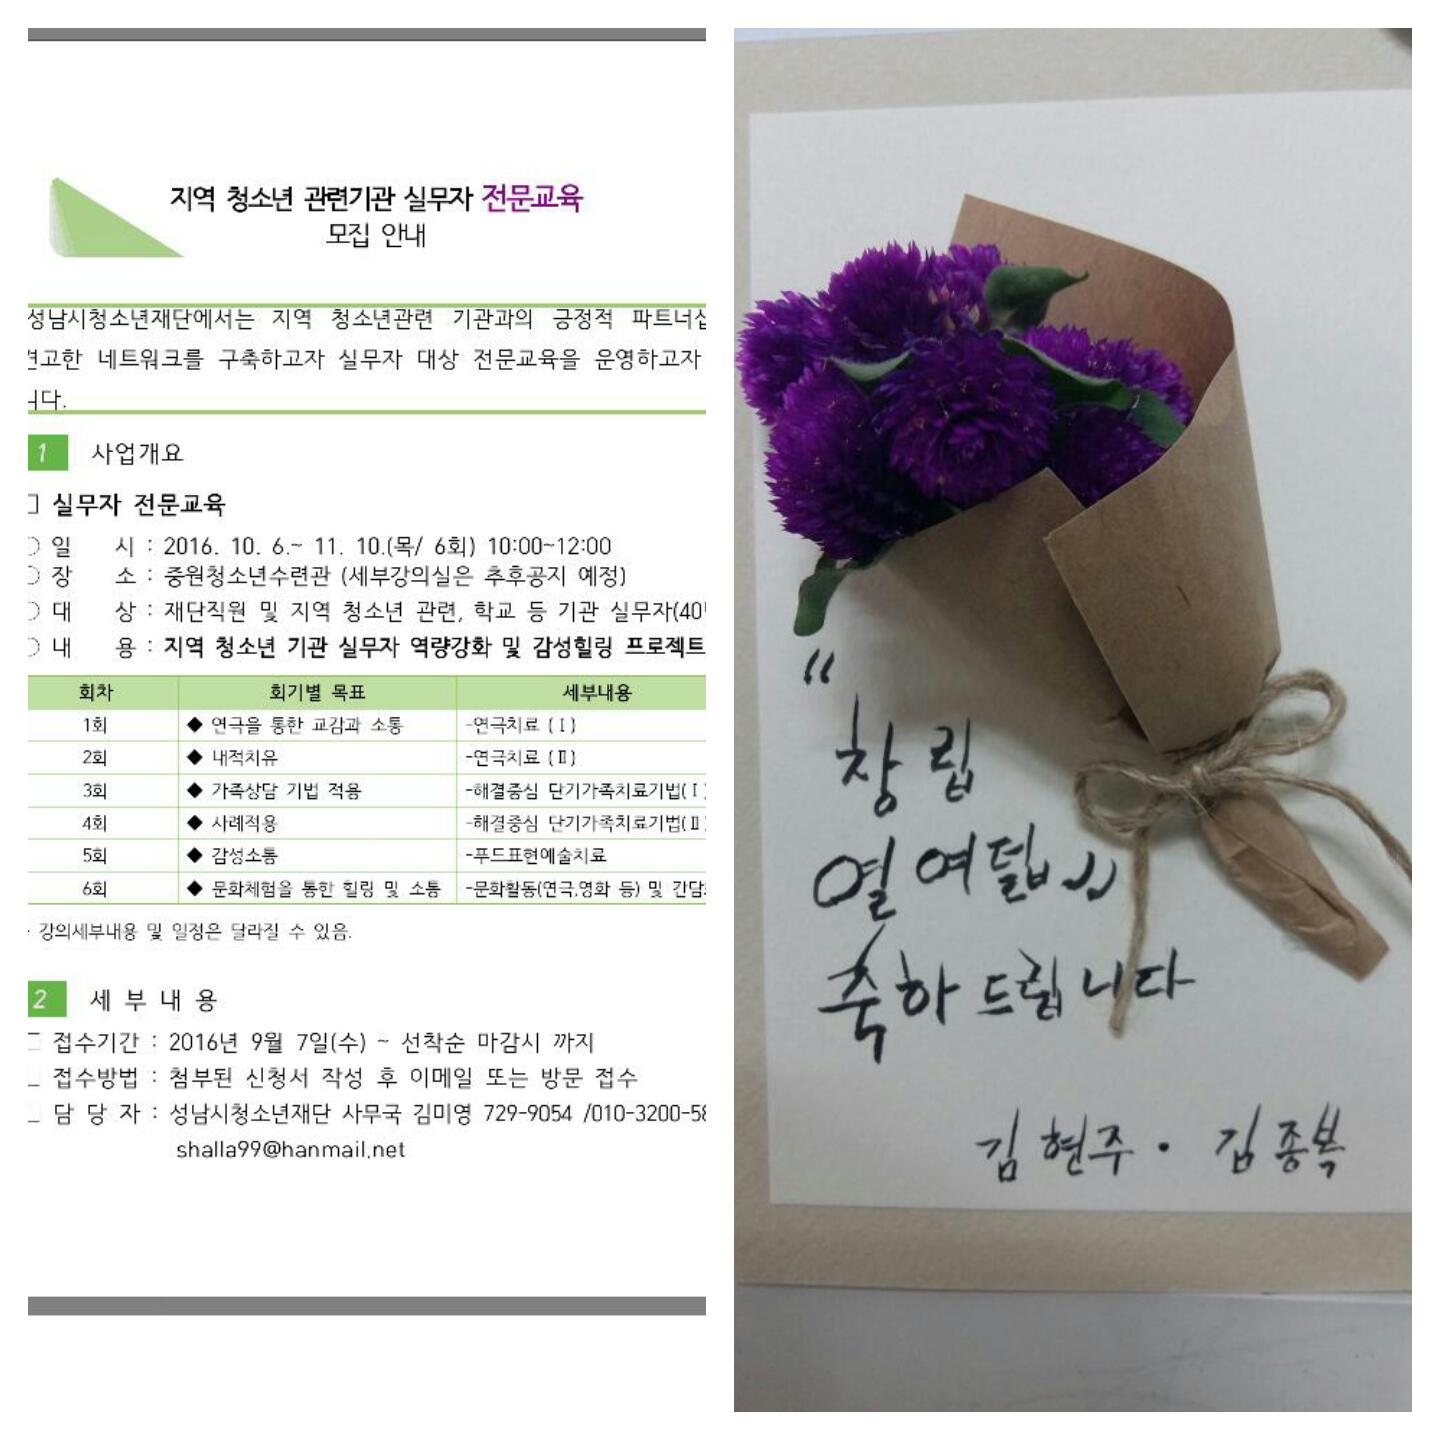 지역 청소년 관련기관 실무자 전문교육
모집 안내
성남시청소년재단에서는 지역 청소년관련 기관과의 긍정적
네트워크를 구축하고자 실무자 대상 전문교육을 운영하고자
니다.
1 사업개요
실무자 전문교육
일 시 : 2016. 10. 6.~ 11. 10.(목/ 6회) 10:00~12:00
장 소 : 중원청소년수련관 (세부강의실은 추후공지 예정)
대 상 : 재단직원 및 지역 청소년 관련, 학교 등 기관 실무자(40
내 용 : 지역 청소년 기관 실무자 역량강화 및 감성힐링 프로젝트
회차 회기별 목표 세부내용
1회 ◆ 연극을 통한 교감과 소통 -연극치료 (Ⅰ)
2회 ◆ 내적치유 -연극치료 (Ⅱ)
3회 ◆ 가족상담 기법 적용 -해결중심 단기가족치료기법(Ⅰ)
4회 ◆ 사례적용 -해결중심 단기가족치료기법(Ⅱ)
5회 ◆ 감성소통 -푸드표현예술치료
6회 ◆ 문화체험을 통한 힐링 및 소통 -문화활동(연극,영화 등) 및 간담
강의세부내용 및 일정은 달라질 수 있음.
2 세 부 내 용
접수기간 : 2016년 9월 7일(수) ~ 선착순 마감시 까지
접수방법 : 첨부된 신청서 작성 후 이메일 또는 방문 접수
담 당 자 : 성남시청소년재단 사무국 김미영 729-9054 /010-3200-58
shalla99@hanmail.net
"창립
열여덟"
축하드립니다
김현주 · 김종복